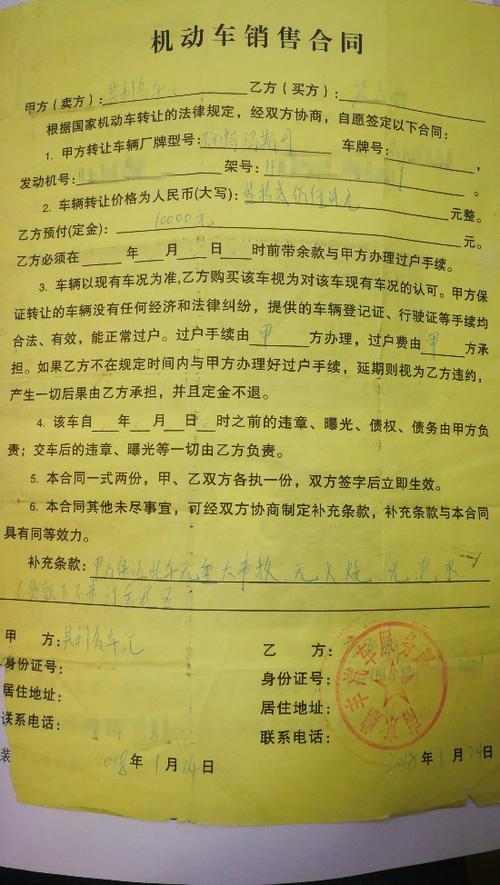 机动车销售合同
甲方（卖方）： 乙方（买方）：
根据国家机动车转让的法律规定，经双方协商，自愿签定以下合同：
1. 甲方转让车辆厂牌型号： 车牌号： ，
发动机号： 架号： 。
2. 车辆转让价格为人民币(大写)： 元整。
乙方预付(定金)：10000元 元。
乙方必须在 年 月 日 时前带余款与甲方办理过户手续。
3. 车辆以现有车况为准,乙方购买该车视为对该车现有车况的认可。甲方保
证转让的车辆没有任何经济和法律纠纷，提供的车辆登记证、行驶证等手续均
合法、有效，能正常过户。过户手续由 甲 方办理，过户费由 甲 方承
担。如果乙方不在规定时间内与甲方办理好过户手续，延期则视为乙方违约，
产生一切后果由乙方承担，并且定金不退。
4. 该车自 年 月 日 时之前的违章、曝光、债权、债务由甲方负
责；交车后的违章、曝光等一切由乙方负责。
5. 本合同一式两份，甲、乙双方各执一份，双方签字后立即生效。
6. 本合同其他未尽事宜，可经双方协商制定补充条款，补充条款与本合同
具有同等效力。
补充条款：甲方保证此车无重大事故、无火烧、无泡水
甲 方： 名车汇 乙 方：
身份证号： 身份证号：
居住地址： 居住地址：
联系电话： 联系电话：
装 018年1月24日 2018年1月24日